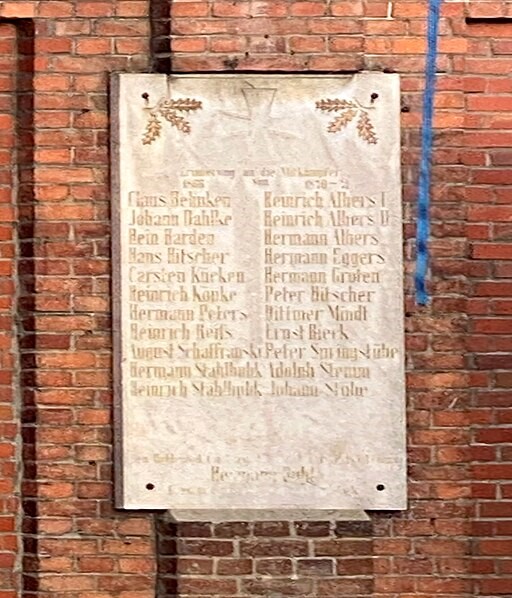 Erinnerung an die Mitkämpfer
1866 von 1870-71
Claus Behnken Heinrich Albers I
Johann Dahlke Heinrich Albers II
Hein Harden Hermann Albers
Hans Hitscher Hermann Eggers
Carsten Kücken Hermann Groten
Heinrich Köpke Peter Hitscher
Hermann Peters Dittmer Mindt
Heinrich Reits Ernst Rieck
August Schaffranski Peter Springstübe
Hermann Stahlbuhk Adolph Stemm
Heinrich Stahlbuhk Johann Stühr
Hermann